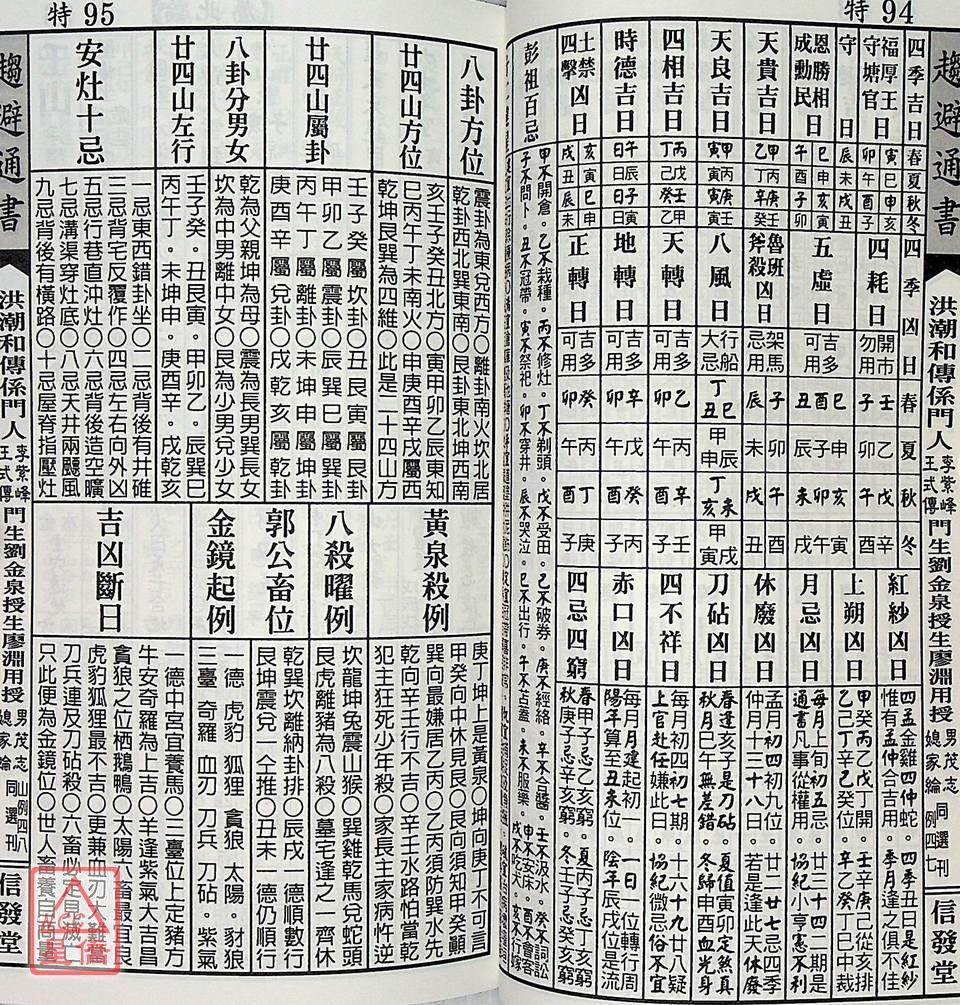 特 94
趨避通書
洪潮和傳係門人
李紫峰
王式傳
門生劉金泉授生廖淵用授
男茂志
媳家綸
同選刊
例四七
信發堂
四季吉日
春
夏
秋
冬
福厚王日
寅
巳
申
亥
守塘官
卯
午
酉
子
守日
辰
未
戌
丑
恩勝相日
巳
申
亥
寅
成動民
午
酉
子
卯
天貴吉日
甲乙
丙丁
庚辛
壬癸
天良吉日
甲寅
丙寅
庚寅
壬寅
四相吉日
丙丁
戊己
壬癸
甲乙
時德吉日
午日
辰日
子日
寅日
土禁
四擊
凶日
亥
寅
巳
申
戌
丑
辰
未
四季凶日
春
夏
秋
冬
四耗日
開市勿用
壬子
乙卯
戊午
辛酉
五虛日
吉多可用
巳酉丑
申子辰
亥卯未
寅午戌
魯班斧殺凶日
架馬忌用
子
卯
午
酉
八風日
行船大忌
丁丑
己
甲申
甲辰
丁亥
丁未
甲寅
甲戌
天轉日
吉多可用
乙卯
丙午
辛酉
壬子
地轉日
吉多可用
辛卯
戊午
癸酉
丙子
正轉日
吉多可用
癸卯
丙午
丁酉
庚子
紅紗凶日
四孟金雞四仲蛇。四季丑日是紅紗
惟有孟仲合吉用。季月逢之俱不佳
上朔凶日
甲癸丙乙戊丁開。壬辛庚己從亥排
乙己丁辛己癸位。辛乙癸丁巳中裁
月忌凶日
每月上旬初五忌。廿三十四二期是
通書凡事從權用。協紀小亨憲不利
休廢凶日
孟月初四初九位。廿二廿七忌四季
仲月十三十八日。若是逢此是休廢
刀砧凶日
春逢亥子是刀砧。夏值寅卯定煞真
秋月巳午無差錯。冬歸申酉血光身
四不祥日
每月初四初七期。十六十九廿八疑
上官赴任嫌此日。協紀微忌俗不宜
赤口凶日
每月月建起初一。一日一位轉行周
陽年算至丑未位。陰年辰戌位是流
四忌四窮
春甲子忌乙亥窮。夏丙子忌丁亥窮
秋庚子忌辛亥窮。冬壬子忌癸亥窮
彭祖百忌
甲不開倉。乙不栽種。丙不修灶。丁不剃頭。戊不受田。己不破券。庚不經絡。辛不合醬。壬不汲水。癸不詞訟
子不問卜。丑不冠帶。寅不祭祀。卯不穿井。辰不哭泣。巳不出行。午不苫蓋。未不服藥。申不安床。酉不會客。戌不吃犬。亥不行嫁
特 95
八卦方位
震卦為東兌西方○離卦南火坎北居
乾卦西北巽東南○艮卦東北坤西南
廿四山方位
亥壬子癸丑北方○寅甲卯乙辰東知
巳丙午丁未南火○申庚酉辛戌屬西
乾坤艮巽為四維○此是二十四山方
廿四山屬卦
壬子癸屬坎卦○丑艮寅屬艮卦
甲卯乙屬震卦○辰巽巳屬巽卦
丙午丁屬離卦○未坤申屬坤卦
庚酉辛屬兌卦○戌乾亥屬乾卦
八卦分男女
乾為父親坤為母○震為長男巽長女
坎為中男離中女○艮為少男兌少女
廿四山左行
壬子癸。丑艮寅。甲卯乙。辰巽巳
丙午丁。未坤申。庚酉辛。戌乾亥
安灶十忌
一忌東西錯卦坐○二忌背後有井碓
三忌背宅反覆作○四忌左右向外凶
五忌行巷直沖灶○六忌背後造空曠
七忌溝渠穿灶底○八忌天井兩颼風
九忌背後有橫路○十忌屋脊指壓灶
黃泉殺例
庚丁坤上是黃泉○坤向庚丁不可言
甲癸向中休見艮○艮向須知甲癸顛
巽向最嫌居乙丙○乙丙須防巽水先
乾向辛壬行不吉○辛壬水路怕當乾
犯主狂死少年殺○家長主家病忤逆
八殺曜例
坎龍坤兔震山猴○巽雞乾馬兌蛇頭
艮虎離豬為八殺○墓宅逢之一齊休
郭公畜位
乾巽坎離納卦排○辰戌一德順數行
艮坤震兌一仝推○丑未一德仍順行
金鏡起例
一德 虎豹 狐狸 貪狼 太陽。豺狼
三臺 奇羅 血刃 刀兵 刀砧。紫氣
吉凶斷日
一德中宮宜養馬○三臺位上定豬方
牛安奇羅為上吉○羊逢紫氣大吉昌
貪狼之位栖鵝鴨○太陽六畜最宜良
虎豹狐狸最不吉○更兼血刃大難當
刀兵連及刀砧殺○六畜必定見滅亡
只此便為金鏡位○世人畜養自商量
趨避通書
洪潮和傳係門人
李紫峰
王式傳
門生劉金泉授生廖淵用授
男茂志
媳家綸
山例四八
同選刊
信發堂